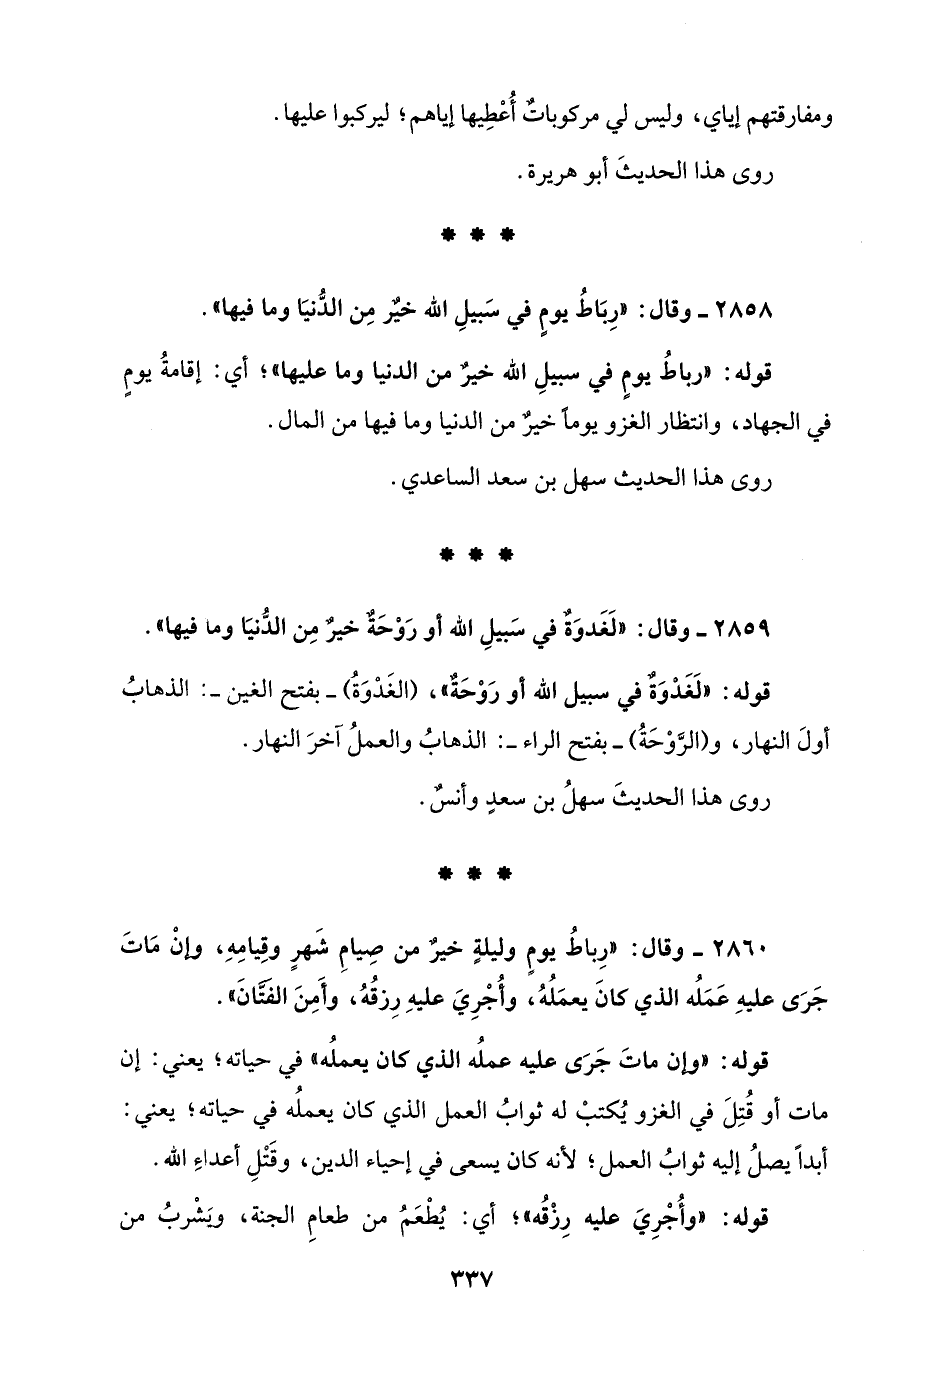 ومفارقتهم إياي، وليس لي مركوباتٌ أُعْطِيها إياهم؛ ليركبوا عليها.
روى هذا الحديثَ أبو هريرة.
* * *
٢٨٥٨ ـ وقال: «رِبَاطُ يومٍ في سَبيلِ الله خيرٌ مِن الدُّنيَا وما فيها».
قوله: «رباطُ يومٍ في سبيلِ الله خيرٌ من الدنيا وما عليها»؛ أي: إقامةُ يومٍ
في الجهاد، وانتظار الغزو يوماً خيرٌ من الدنيا وما فيها من المال.
روى هذا الحديث سهل بن سعد الساعدي.
* * *
٢٨٥٩ ـ وقال: «لَغَدوَةٌ في سَبيلِ الله أو رَوْحَةٌ خيرٌ مِن الدُّنيَا وما فيها».
قوله: «لَغَدْوَةٌ في سبيل الله أو رَوْحَةٌ»، (الغَدْوَةُ) ـ بفتح الغين ـ: الذهابُ
أولَ النهار، و(الرَّوْحَةُ) ـ بفتح الراء ـ: الذهابُ والعملُ آخرَ النهار.
روى هذا الحديثَ سهلُ بن سعدٍ وأنسٌ.
* * *
٢٨٦٠ ـ وقال: «رِباطُ يومٍ وليلةٍ خيرٌ من صِيامِ شَهرٍ وقِيامِهِ، وإنْ مَاتَ
جَرَى عليهِ عَمَلُه الذي كانَ يعمَلُهُ، وأُجْرِيَ عليهِ رِزقُهُ، وأَمِنَ الفَتَّانَ».
قوله: «وإن ماتَ جَرَى عليه عملُه الذي كان يعملُه» في حياته؛ يعني: إن
مات أو قُتِلَ في الغزو يُكتبْ له ثوابُ العمل الذي كان يعملُه في حياته؛ يعني:
أبداً يصلُ إليه ثوابُ العمل؛ لأنه كان يسعى في إحياء الدين، وقَتْلِ أعداءِ الله.
قوله: «وأُجْرِيَ عليه رِزْقُه»؛ أي: يُطْعَمُ من طعامِ الجنة، ويَشْربُ من
٣٣٧